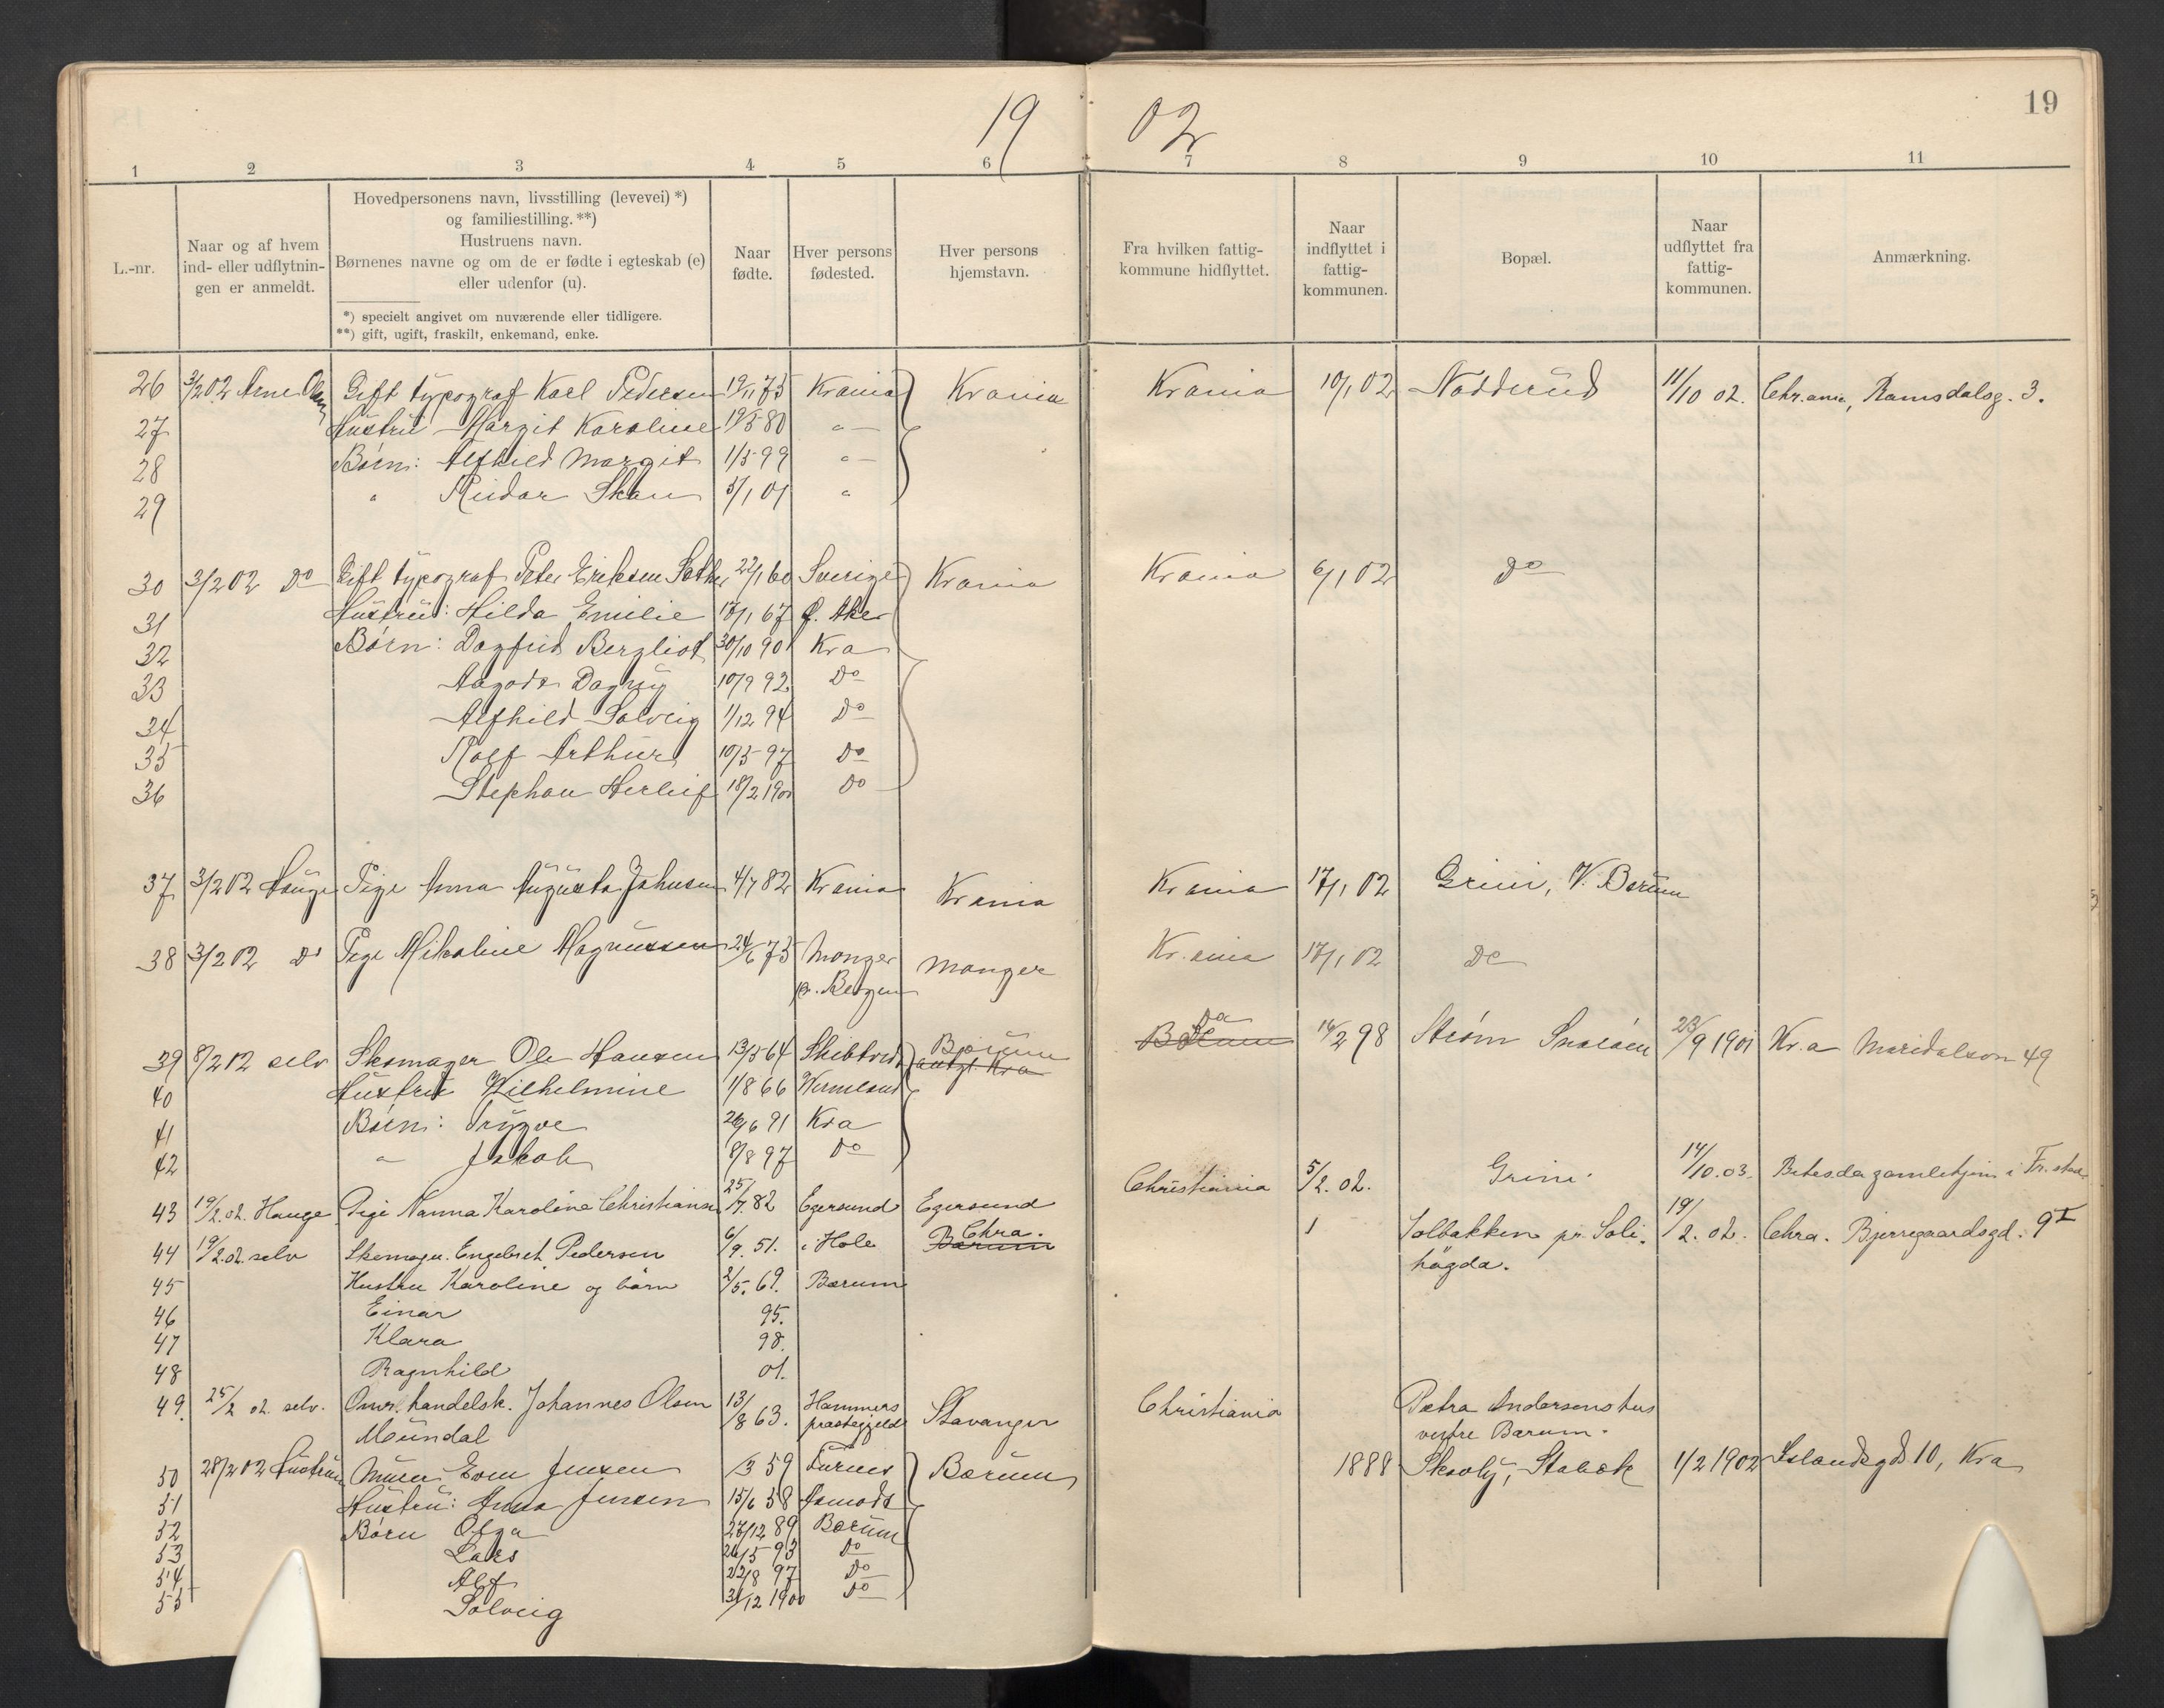 19 02
19
1 2 3 4 5 6 7 8 9 10 11
L.-nr.
Naar og af hvem
ind- eller udflytnin-
gen er anmeldt.
Hovedpersonens navn, livsstilling (levevei) *)
og familiestilling. **)
Hustruens navn.
Børnenes navne og om de er fødte i egteskab (e)
eller udenfor (u).
*) specielt angivet om nuværende eller tidligere.
**) gift, ugift, fraskilt, enkemand, enke.
Naar
fødte.
Hver persons
fødested.
Hver persons
hjemstavn.
Fra hvilken fattig-
kommune hidflyttet.
Naar
indflyttet i
fattig-
kommunen.
Bopæl.
Naar
udflyttet fra
fattig-
kommunen.
Anmærkning.
26 3/2 02 Arne Olsen Gift typograf Karl Pedersen 19/11 75 Krania Krania Krania 10/1 02 Nadderud 11/10 02. Chr.ania, Ramsdalsg. 3.
27 Hustru Margit Karoline 19/5 80 "
28 Børn: Alfhild Margit 1/5 99 "
29 " Reidar Skau 5/1 01 "
30 3/2 02 Do Gift typograf Peter Eriksen Sæther 22/1 60 Sverige Krania Krania 6/1 02 Do
31 Hustru: Hilda Emilie 17/1 67 Ø. Aker
32 Børn: Dagfrid Bergliot 30/10 90 Kra
33 Aagode Dagny 10/9 92 Do
34 Alfhild Solveig 1/12 94 Do
35 Rolf Arthur 10/5 97 Do
36 Stephan Herleif 18/2 1900 Do
37 3/2 02 Hauge Pige Anna Augusta Johnsen 4/7 82 Krania Krania Krania 17/1 02 Grini, V. Bærum
38 3/2 02 Do Pige Mikaline Magnussen 24/6 75 Manger Manger Kr.ania 17/1 02 Do
pr. Bergen
39 8/2 02 selv Skomager Ole Hansen 13/5 64 Skibtvedt Bærum Bærum 16/2 98 Strøm Snarøen 23/9 1901 Kr.a Maridalsvn 49
antgl. Kra
40 Hustru Wilhelmine 1/8 66 Vermland
41 Børn: Trygve 26/6 91 Kra
42 " Jakob 8/8 97 Do
43 19/2. 02. Hauge Pige Nanna Karoline Christiansen 25/7 82 Egersund Egersund Christiania 5/2. 02. Grini. 14/10. 03. Betesda gamlehjem i Fr.stad
44 19/2. 02. selv Skomager Engebret Pedersen 6/9. 51. i Hole Bærum Chra. 1 Solbakken pr. Soli- 19/2. 02. Chra. Bjerregaardsgd. 9 I
høgda.
45 Hustru Karoline og børn 2/5. 69. Bærum
46 Einar 95.
47 Klara 98.
48 Ragnhild 01.
49. 25/2 02. selv. Omr. handelsk. Johannes Olsen 13/8 63. Hammers Stavanger Christiania Petra Andersens hus
Mundal præstegjeld vestre Bærum.
50 28/2 02 Hustruen Murer Even Jensen 1/3 59 Furnes Bærum 1888 Skovly, Stabæk 1/2 1902 Islandsgd 10, Kra
51 Hustru: Anna Jensen 15/6 58 Aamodt
52 Børn Olga 27/12 89 Bærum
53 Lars 26/5 93 Do
54 Alf 22/8 97 Do
55 Solveig 31/12 1900 Do